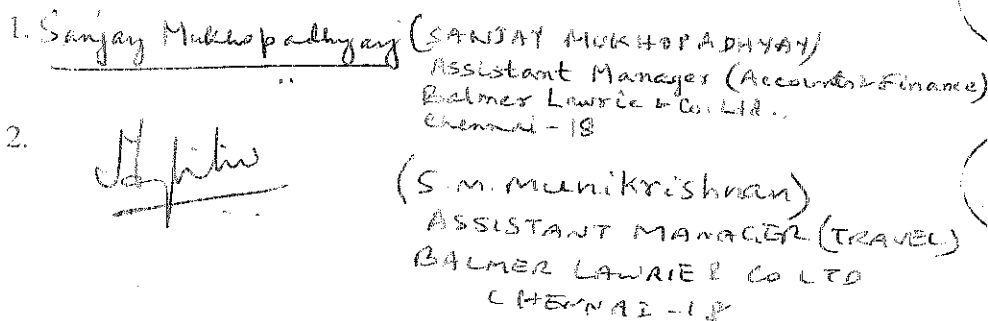 1. Sanjay Mukhopadhyay (SANJAY MUKHOPADHYAY)
Assistant Manager (Accounts & Finance)
Balmer Lawrie & Co. Ltd..
Chennai - 18
2.
(S.M. Munikrishnan)
ASSISTANT MANAGER (TRAVEL)
BALMER LAWRIE & CO LTD
CHENNAI - 18